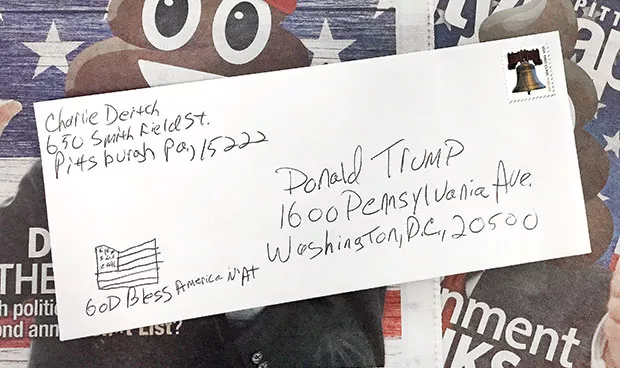 Charlie Deitch
650 Smithfield St.
Pittsburgh Pa, 15222
Donald Trump
1600 Pennsylvania Ave.
Washington, D.C., 20500
GOD Bless America N'At
D
THE
h politi
ond ann
List?
PITT
ty
ap
nment
KS